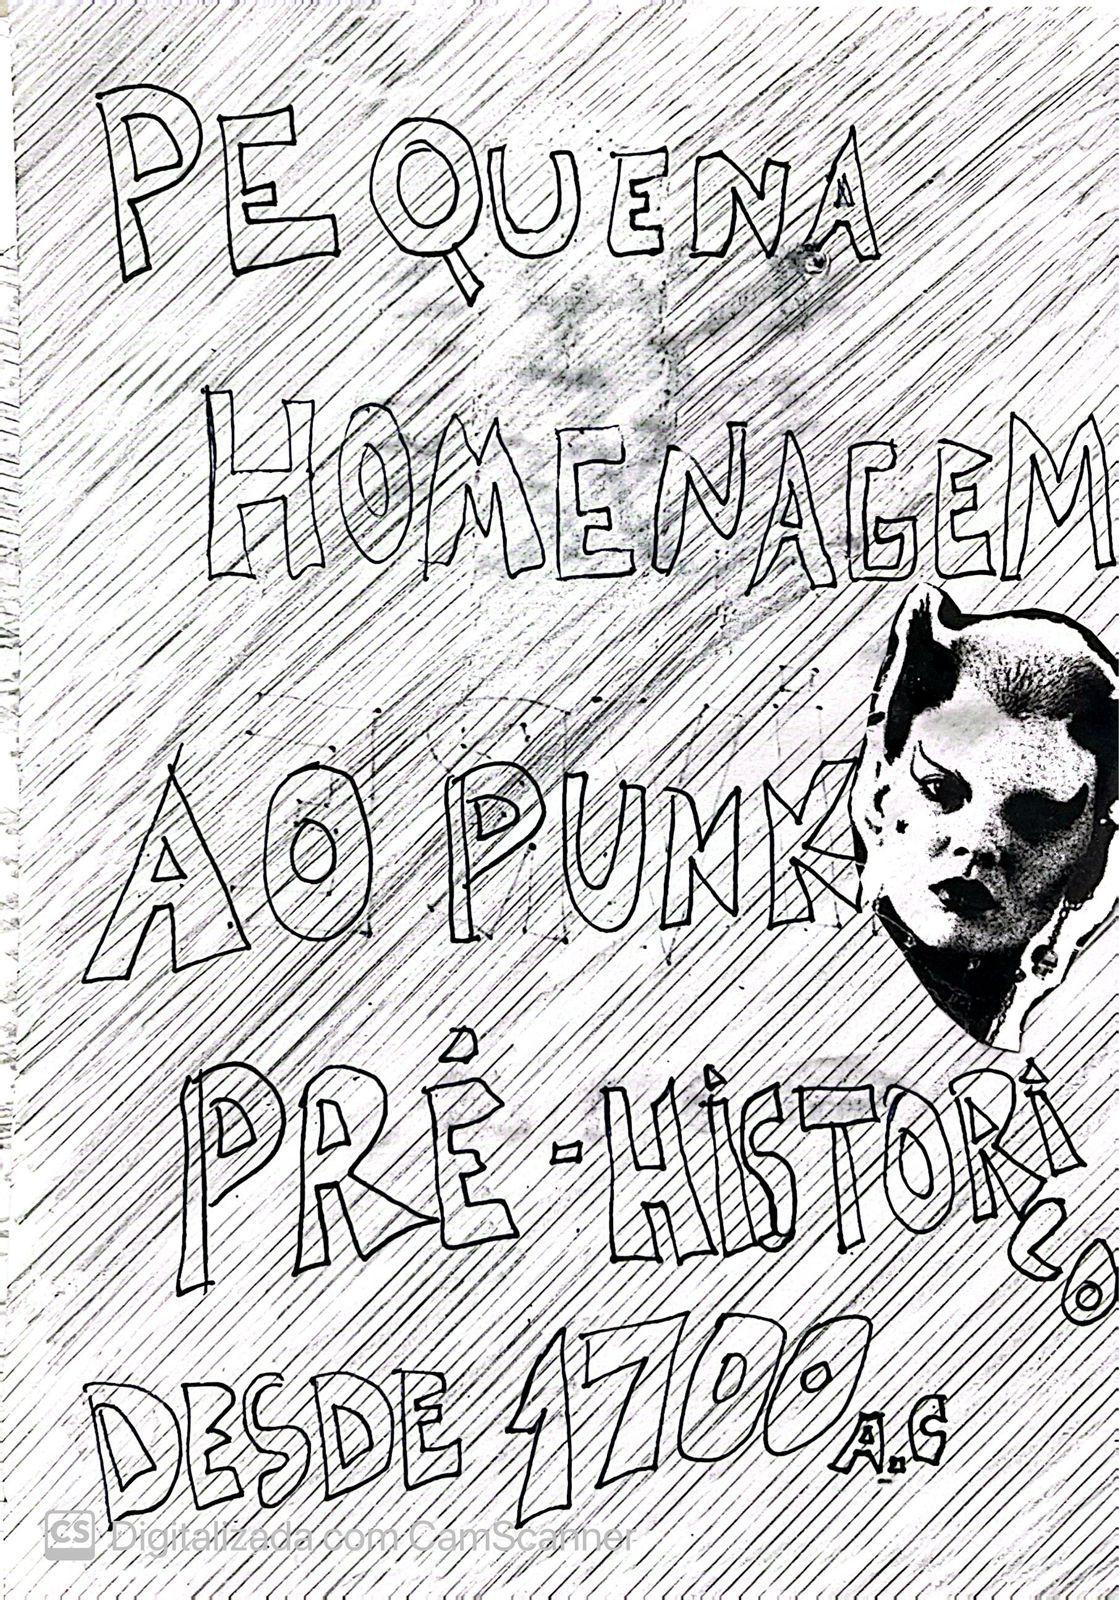 PEQUENA
HOMENAGEM
AO PUNK
PRÉ-HiSTORiCO
DESDE 1700 A.C
CS Digitalizada com CamScanner